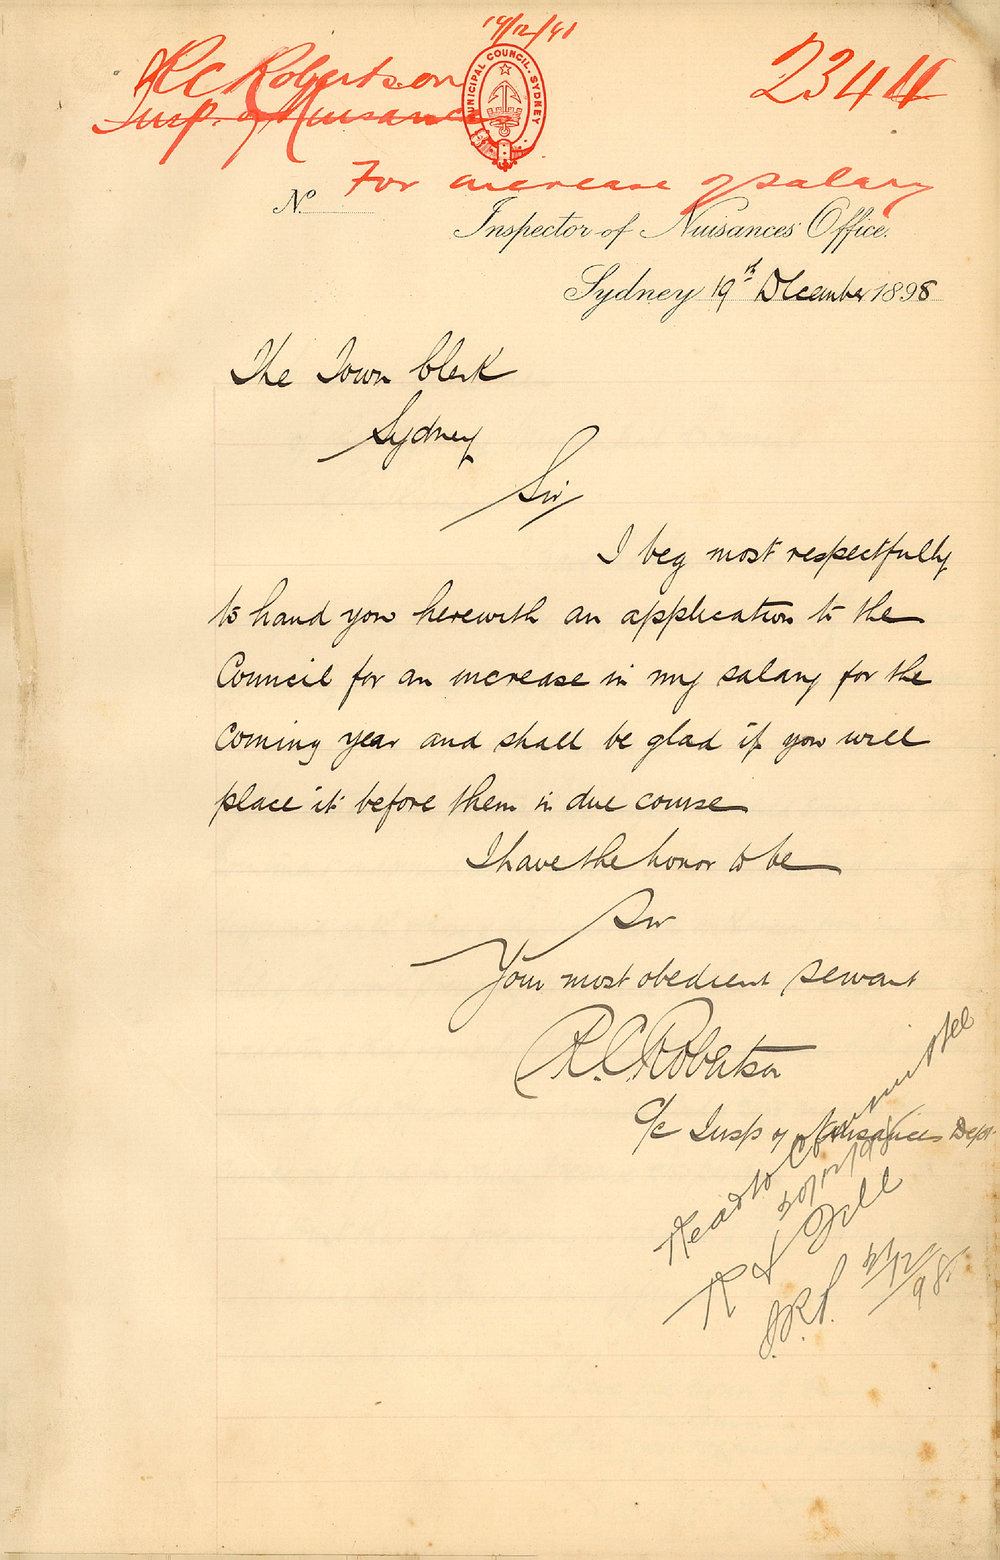 19/12/98
R C Robertson
Insp. of Nuisances
2344
MUNICIPAL COUNCIL. SYDNEY
For increase of salary
No
Inspector of Nuisances Office.
Sydney 19th December 1898
The Town Clerk
Sydney
Sir
I beg most respectfully
to hand you herewith an application to the
Council for an increase in my salary for the
Coming year and shall be glad if you will
place it before them in due course
I have the honor to be
Sir
Your most obedient servant
R. C. Robertson
o/c Insp of Nuisances Dept.
Read to Committee
20/12/98
R & File
21/12/98